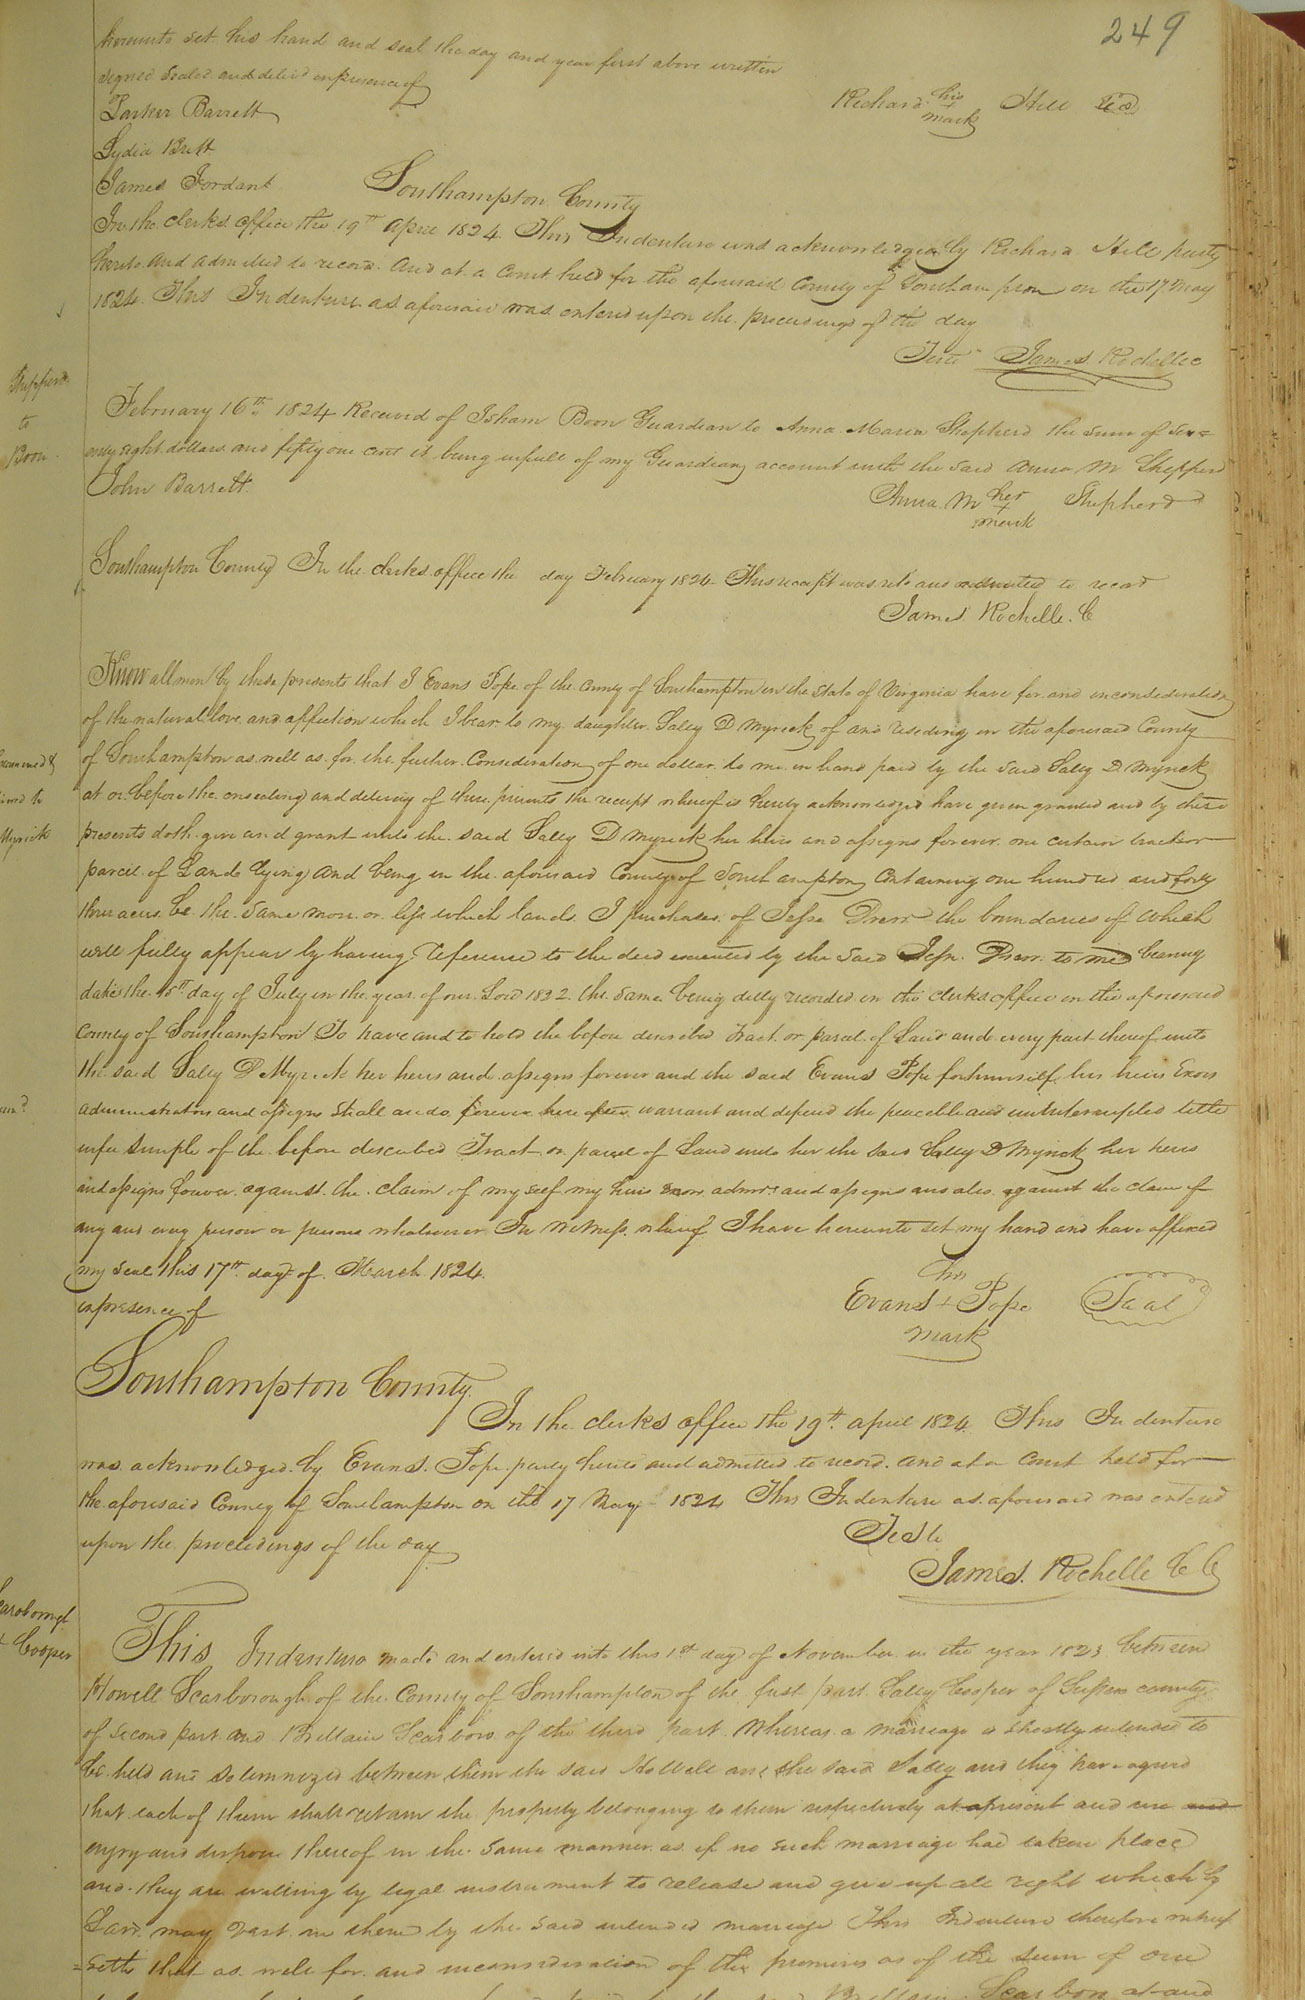 249
hereunto set his hand and seal the day and year first above written
signed sealed and delivd in presence of
Richard his + mark Hill
Parker Barrett
Lydia Britt
James Jordant
Southampton County
In the clerks office the 19th April 1824 This Indenture was acknowledged by Richard Hill party
hereto and admitted to record. And at a Court held for the aforesaid County of Southampton on the 17 May
1824. This Indenture as aforesaid was entered upon the proceedings of the day
Teste James Rochelle
Shepperd
to
Boon
February 16th 1824 Received of Isham Boon Guardian to Anna Maria Shepherd the sum of Seve=
nty eight dollars and fifty one cent it being in full of my Guardian account with the said Anna M Shepperd
John Barrett
Anna M her + mark Shepherd
Southampton County In the clerks office the day February 1824 This receipt was retd and admitted to record
James Rochelle. C
Know all men by these presents that I Evans Pope of the County of Southampton in the State of Virginia have for and in consideration
of the natural love and affection which I bear to my daughter Sally D Myrick of and residing in the aforesaid County
of Southampton as well as for the further Consideration of one dollar to me in hand paid by the said Sally D Myrick
at or before the ensealing and delivery of these presents the receipt whereof is hereby acknowledged have given granted and by these
presents doth give and grant unto the said Sally D Myrick her heirs and assigns forever one certain tract or
parcel of Land lying and being in the aforesaid County of Southampton Containing one hundred and forty
three acres be the same more or less which lands I purchased of Jesse the boundaries of which
will fully appear by having reference to the deed executed by the said Jesse to me bearing
date the 15th day of July in the year of our Lord the same being duly recorded in the clerks office in the aforesaid
County of Southampton To have and to hold the before described tract or parcel of Land and every part thereof unto
the said Sally D Myrick her heirs and assigns forever and the said Evans Pope for himself his heirs Exors
administrators and assigns shall and do forever here after warrant and defend the peaceble and uninterrupted title
in fee simple of the before described Tract or parcel of Land unto her the said Sally D Myrick her heirs
and assigns forever against the claim of my self my heirs exors admors and assigns and also against the claim of
any and every person or persons whatsoever In Witness whereof I have hereunto set my hand and have affixed
my seal this 17th day of March 1824.
in presence of
Evans his + mark Pope Seal
Examined &
to
Myrick
Southampton County
In the clerks office the 19th april 1824 This Indenture
was acknowledged by Evans Pope party hereto and admitted to record. and at a Court held for
the aforesaid County of Southampton on the 17 May 1824 This Indenture as aforesaid was entered
upon the proceedings of the day
Teste
James Rochelle C C
Scarborough
Cooper
This Indenture made and entered into this 1st day of November in the year 1823 between
Howell Scarborough of the County of Southampton of the first part Sally Cooper of Sussex county
of second part and Brittain Scarboro of the third part Whereas a marriage is shortly intended to
be held and solemnized between them the said Howell and the said Sally and they have agreed
that each of them shall retain the property belonging to them respectively at present and use and
enjoy and dispose thereof in the same manner as if no such marriage had taken place
and they are willing by legal instrument to release and give up all right which by
Law may vest in them by the said intended marriage This Indenture therefore witnes
=seth that as well for and in consideration of the premises as of the sum of one
Brittain Scarboro at and